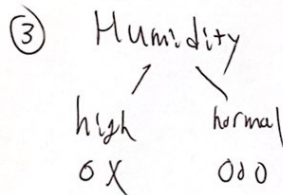 ③ Humidity
high normal
O X O O O